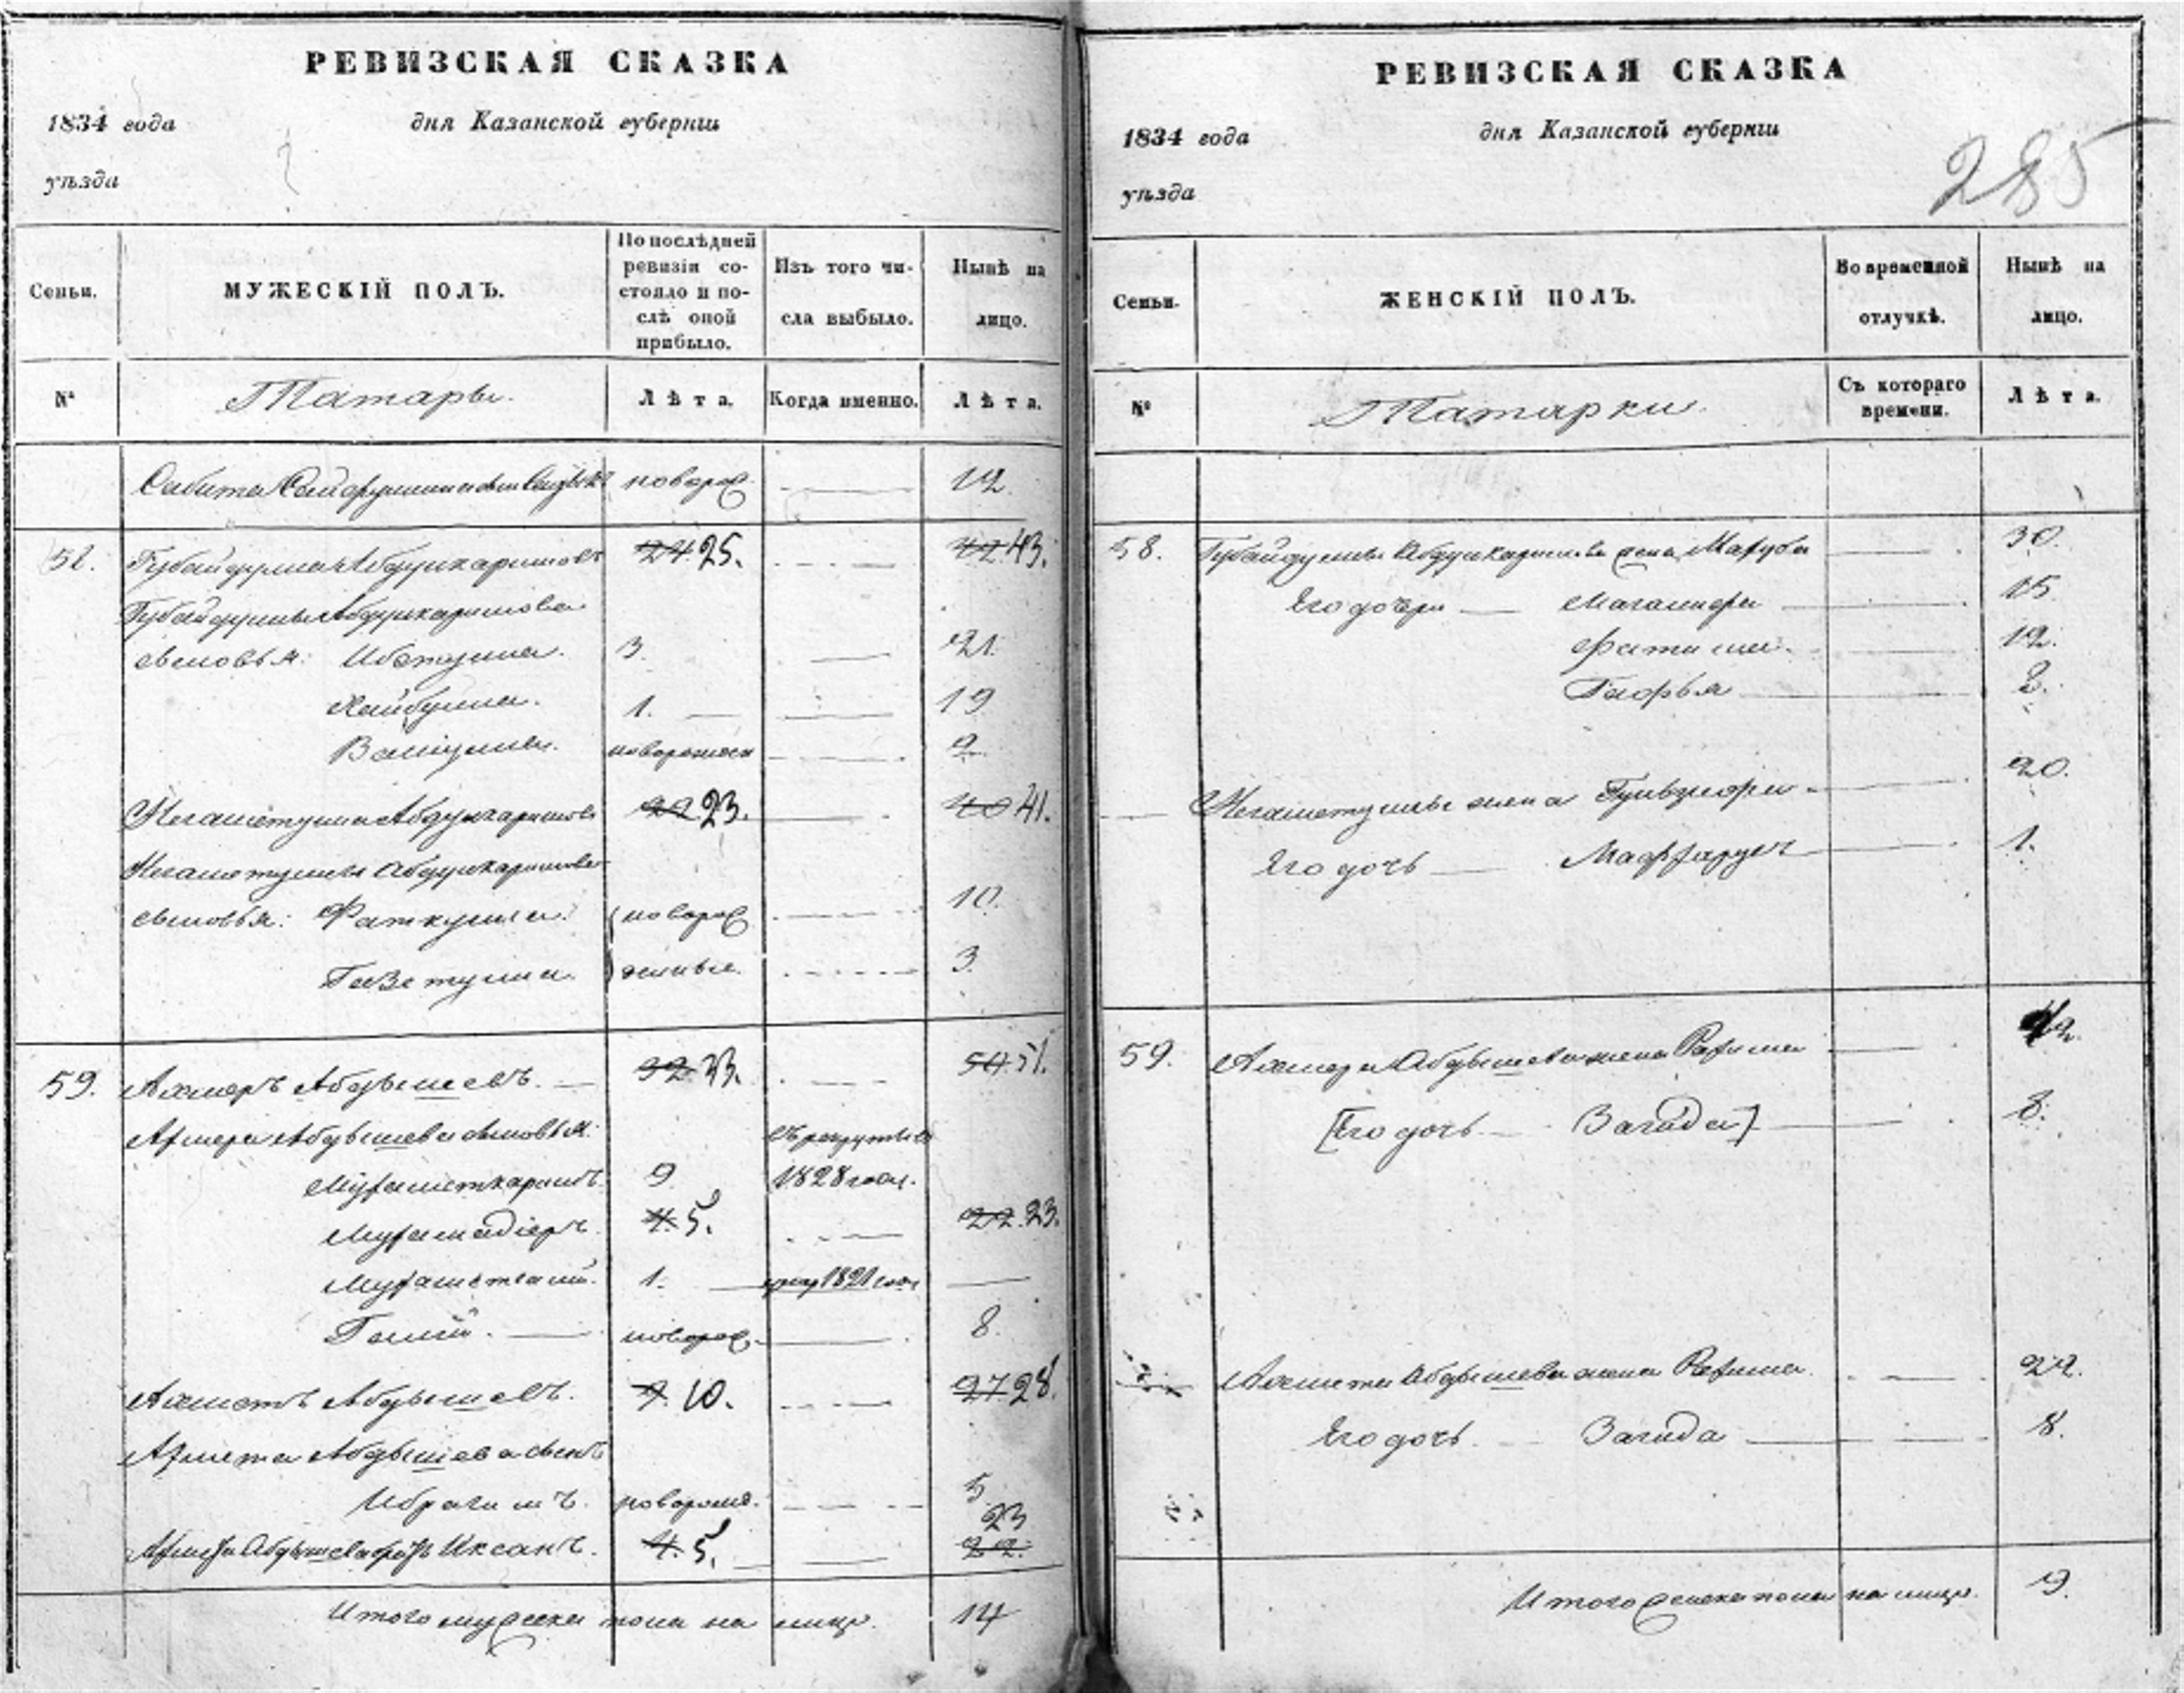 РЕВИЗСКАЯ СКАЗКА
1834 года дня Казанской губерніи
уѣзда
Семьи. МУЖЕСКІЙ ПОЛЪ. По послѣдней ревизіи состояло и послѣ оной прибыло. Изъ того числа выбыло. Нынѣ на лицо.
№ Татары. Лѣта. Когда именно. Лѣта.
Сабита новорож 12.
58. Губайдулла Абдулкаримовъ 24 25. 42 43.
Губайдуллы Абдулкаримова
сыновья: Ибетулла. 3. 21.
Хайбулла. 1. 19
Валиулла. новорожден 2
Негаметулла Абдулкаримовъ 22 23. 40 41.
Негаметуллы Абдулкаримова
сыновья: Фаткулла. новорож 10.
Газетулла. денные. 3.
59. Ахмеръ Абдышевъ. 32 33. 50 51.
Ахмера Абдышева сыновья: въ рекруты въ
Мухаметкаримъ 9. 1828 году.
Мухамадіеръ. 4. 5. 22. 23.
Мухаметгалій. 1. умер 1821 году
Галій. новорож. 8.
Ахметъ Абдышевъ. 9. 10. 27 28.
Ахмета Абдышева сынъ
Ибрагимъ. новорожд. 5
23
Абдышева братъ Иксанъ. 4. 5. 22.
Итого мужеска пола на лицо. 14
РЕВИЗСКАЯ СКАЗКА
1834 года дня Казанской губерніи
285
уѣзда
Семьи. ЖЕНСКІЙ ПОЛЪ. Во временной отлучкѣ. Нынѣ на лицо.
№ Татарки. Съ котораго времени. Лѣта.
58. Губайдуллы Абдулкаримова жена Магуба 30.
Его дочери Магалифа 15
Фатима. 12.
Гафья 2.
Негаметуллы жена Гульзифа 20.
Его дочь 1.
59. Ахмера Абдышева жена Рахима 42.
[Его дочь Загида] 8.
Ахмета Абдышева жена Рахима. 22.
Его дочь Загида 8.
Итого женска пола на лицо. 9.